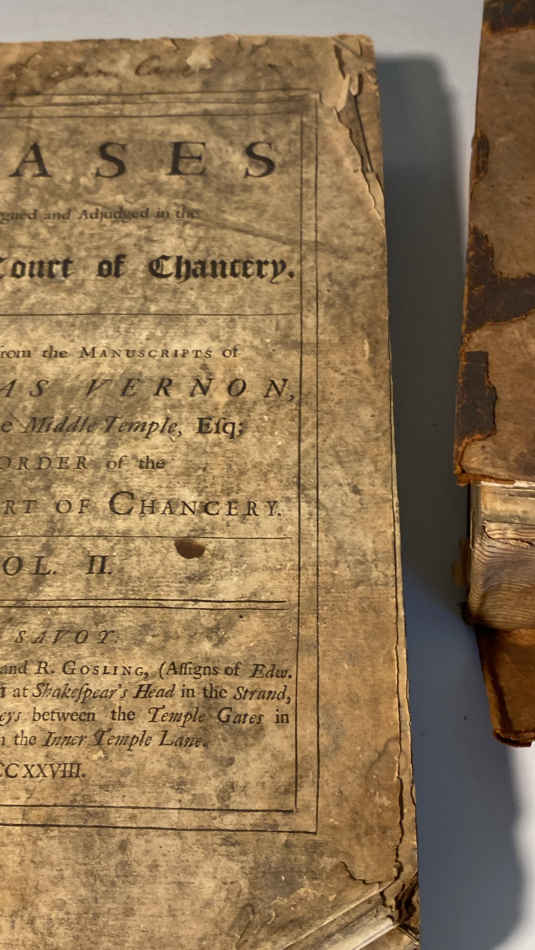 ASES
gued and Adjudged in the
Court of Chancery.
from the MANUSCRIPTS of
AS VERNON,
e Middle Temple, Eſq;
ORDER of the
RT OF CHANCERY.
OL. II.
SAVOY.
and R. GOSLING, (Aſſigns of Edw.
at Shakeſpear's Head in the Strand,
eys between the Temple Gates in
the Inner Temple Lane.
CCXXVIII.